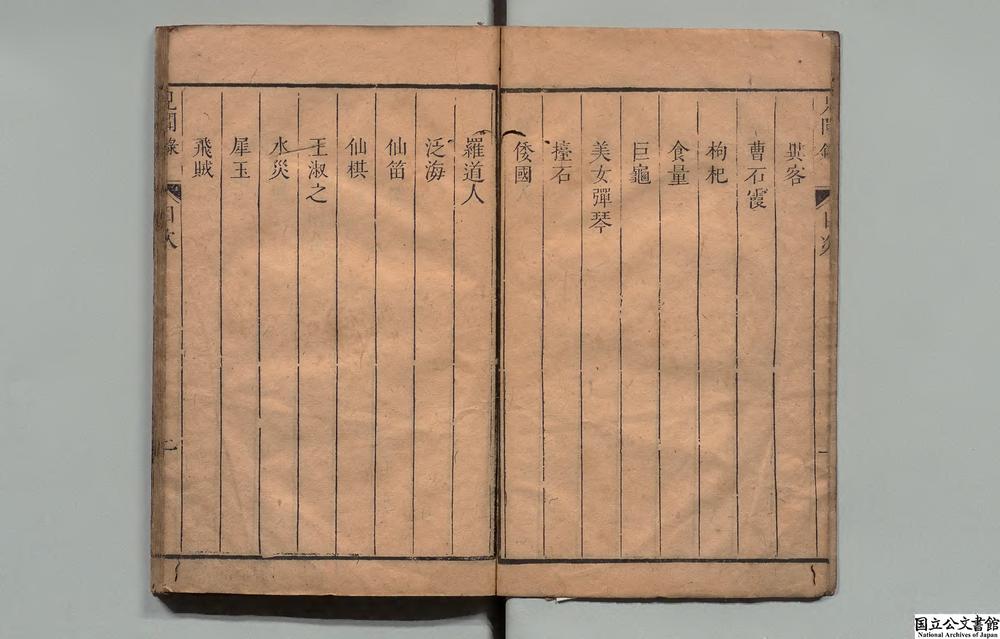 見聞錄 目次 一
客
曹石霞
枸杞
食量
巨龜
美女彈琴
擡石
倭國
羅道人
泛海
仙笛
仙棋
王淑之
水災
犀玉
飛賊
見聞錄 目次 一
国立公文書館
National Archives of Japan